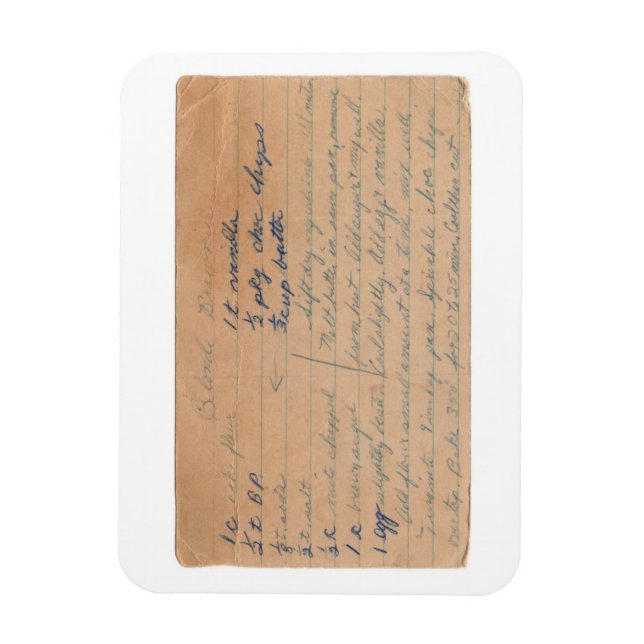 Blonde
1 c cake flour 1 t vanilla
½ t BP ½ pkg choc chips
⅛ t soda ⅓ cup butter
½ t salt Sift dry ingredients. Add nuts.
½ c nuts chopped Melt butter in sauce pan, remove
1 c brown sugar from heat. Add sugar & mix well.
1 egg slightly beaten Cool slightly. Add egg & vanilla.
Add flour small amount at a time mix well.
Turn into 9 in sq pan Sprinkle choc chips
over top Bake 350° for 20 to 25 min. Cool then cut